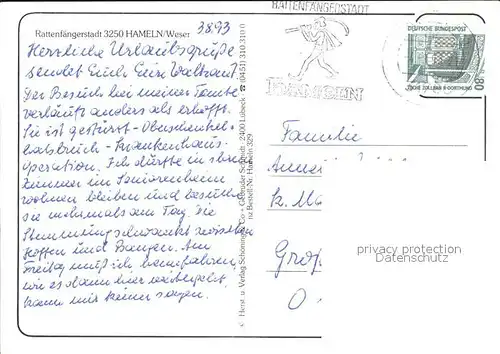 Rattenfängerstadt 3250 HAMELN/Weser
3.8.93
Herzliche Urlaubsgrüße
sendet Euch Eure Waltraut.
Der Besuch bei meiner Tante
verläuft anders als erhofft.
Sie ist gestürzt - Oberschenkel-
halsbruch - Krankenhaus-
operation. Ich durfte in ihrem
Zimmer im Seniorenheim
wohnen bleiben und besuche
sie mehrmals am Tag. Die
Stimmung schwankt zwischen
Hoffen und Bangen. Am
Freitag muß ich heimfahren,
wie es dann hier weitergeht,
kann mir keiner sagen.
© Herst. u. Verlag Schöning & Co + Gebrüder Schmidt · 2400 Lübeck · ☎ (0451) 310 310 0
Bestell-Nr. Hameln 329
RATTENFÄNGERSTADT
HAMELN
DEUTSCHE BUNDESPOST
80
ZECHE ZOLLERN II DORTMUND
Familie
privacy protection
Datenschutz